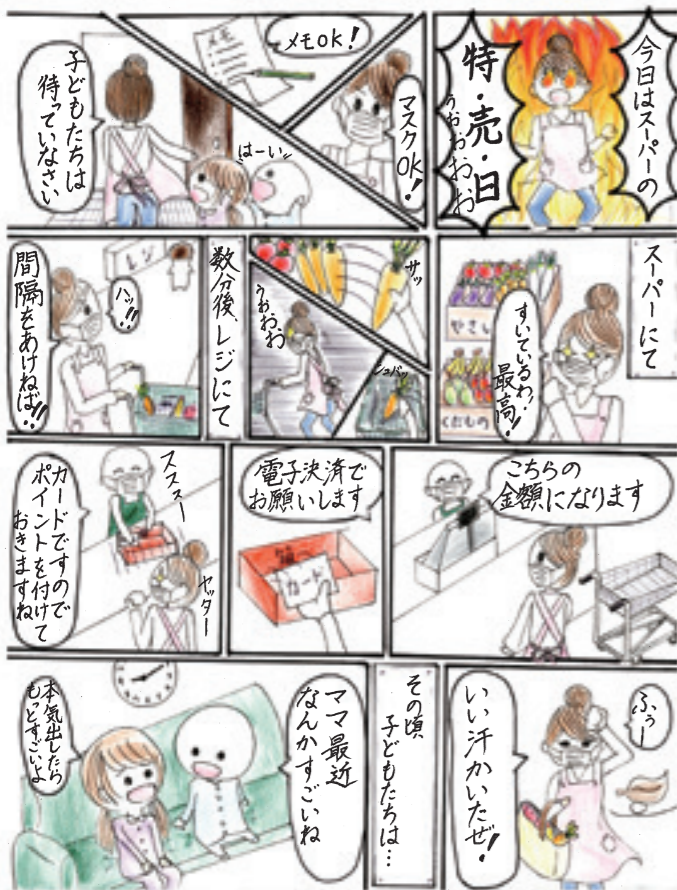 今日はスーパーの
特・売・日
うおおおお
メモ
メモOK!
マスクOK!
はーい
子どもたちは
待っていなさい
スーパーにて
やさい
くだもの
すいているわ!
最高!
サッ
うおお、お
シュバッ
数分後、レジにて
レジ
ハッ!!
間隔をあけねば!!
こちらの
金額になります
電子決済で
お願いします
カード
スススー
カードですので
ポイントを付けて
おきますね
ヤッター
ふぅー
いい汗かいたぜ!
その頃
子どもたちは…
ママ最近
なんかすごいね
本気出したら
もっとすごいよ